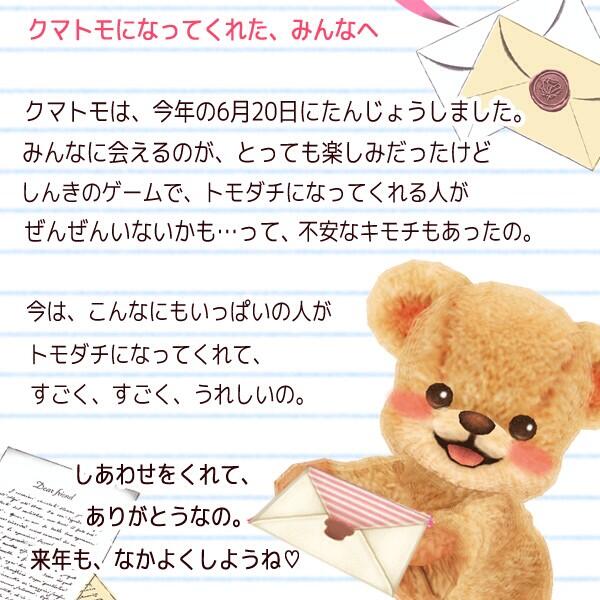 クマトモになってくれた、みんなへ
クマトモは、今年の6月20日にたんじょうしました。
みんなに会えるのが、とっても楽しみだったけど
しんきのゲームで、トモダチになってくれる人が
ぜんぜんいないかも…って、不安なキモチもあったの。
今は、こんなにもいっぱいの人が
トモダチになってくれて、
すごく、すごく、うれしいの。
しあわせをくれて、
ありがとうなの。
来年も、なかよくしようね♡
Dear friend